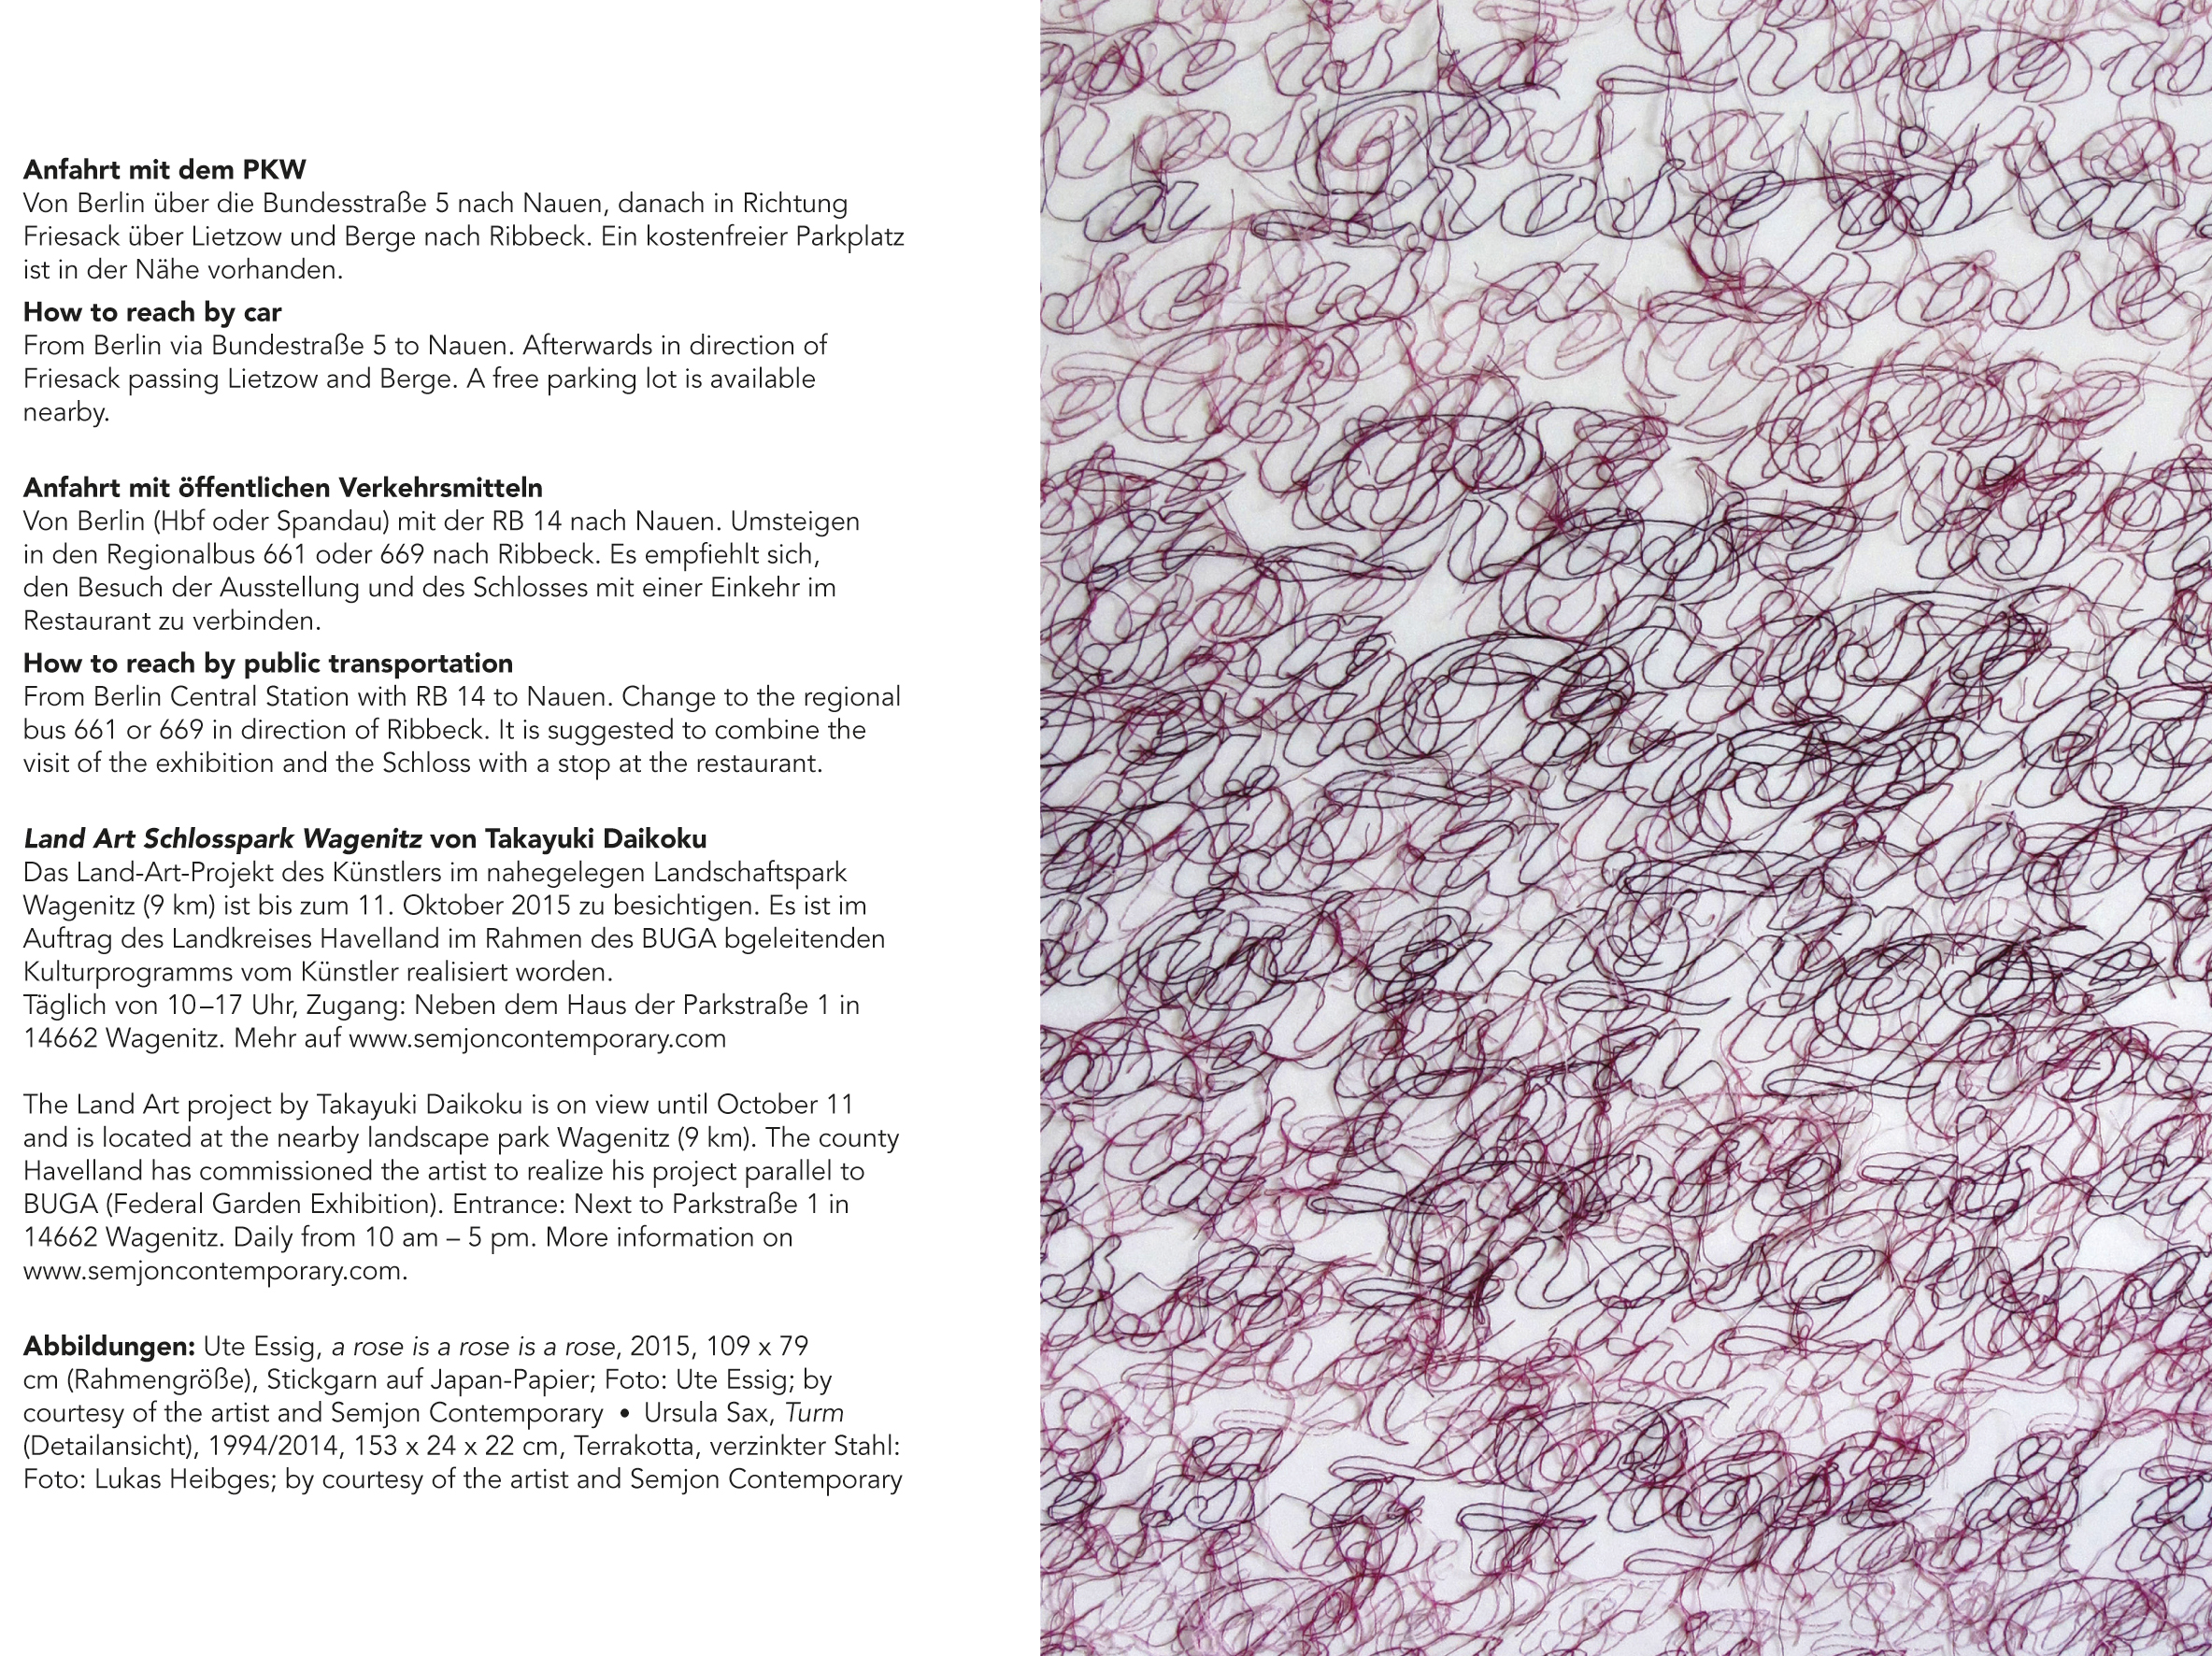 Anfahrt mit dem PKW
Von Berlin über die Bundesstraße 5 nach Nauen, danach in Richtung
Friesack über Lietzow und Berge nach Ribbeck. Ein kostenfreier Parkplatz
ist in der Nähe vorhanden.
How to reach by car
From Berlin via Bundestraße 5 to Nauen. Afterwards in direction of
Friesack passing Lietzow and Berge. A free parking lot is available
nearby.
Anfahrt mit öffentlichen Verkehrsmitteln
Von Berlin (Hbf oder Spandau) mit der RB 14 nach Nauen. Umsteigen
in den Regionalbus 661 oder 669 nach Ribbeck. Es empfiehlt sich,
den Besuch der Ausstellung und des Schlosses mit einer Einkehr im
Restaurant zu verbinden.
How to reach by public transportation
From Berlin Central Station with RB 14 to Nauen. Change to the regional
bus 661 or 669 in direction of Ribbeck. It is suggested to combine the
visit of the exhibition and the Schloss with a stop at the restaurant.
Land Art Schlosspark Wagenitz von Takayuki Daikoku
Das Land-Art-Projekt des Künstlers im nahegelegen Landschaftspark
Wagenitz (9 km) ist bis zum 11. Oktober 2015 zu besichtigen. Es ist im
Auftrag des Landkreises Havelland im Rahmen des BUGA bgeleitenden
Kulturprogramms vom Künstler realisiert worden.
Täglich von 10–17 Uhr, Zugang: Neben dem Haus der Parkstraße 1 in
14662 Wagenitz. Mehr auf www.semjoncontemporary.com
The Land Art project by Takayuki Daikoku is on view until October 11
and is located at the nearby landscape park Wagenitz (9 km). The county
Havelland has commissioned the artist to realize his project parallel to
BUGA (Federal Garden Exhibition). Entrance: Next to Parkstraße 1 in
14662 Wagenitz. Daily from 10 am – 5 pm. More information on
www.semjoncontemporary.com.
Abbildungen: Ute Essig, a rose is a rose is a rose, 2015, 109 x 79
cm (Rahmengröße), Stickgarn auf Japan-Papier; Foto: Ute Essig; by
courtesy of the artist and Semjon Contemporary • Ursula Sax, Turm
(Detailansicht), 1994/2014, 153 x 24 x 22 cm, Terrakotta, verzinkter Stahl:
Foto: Lukas Heibges; by courtesy of the artist and Semjon Contemporary
a rose is a